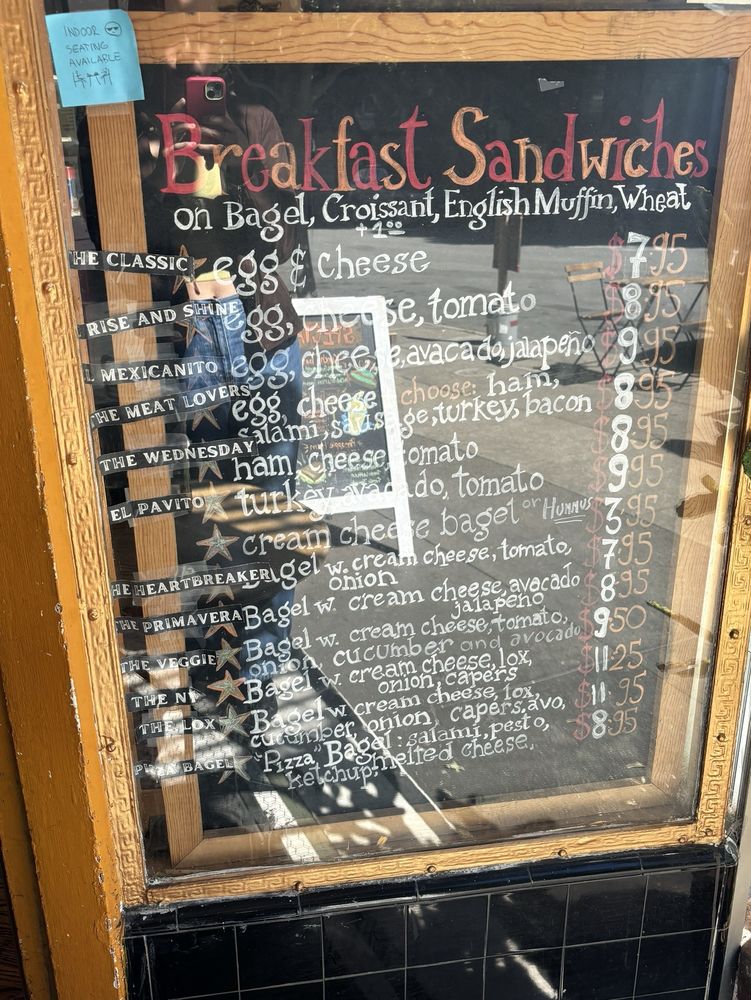 INDOOR
SEATING
AVAILABLE
Breakfast Sandwiches
on Bagel, Croissant, English Muffin, Wheat
+1⁰⁰
HE CLASSIC egg & cheese $7.95
RISE AND SHINE egg, cheese, tomato $8.95
L MEXICANITO egg, cheese, avacado, jalapeño $9.95
THE MEAT LOVERS egg, cheese choose: ham, $8.95
salami, sausage, turkey, bacon
THE WEDNESDAY ham, cheese tomato $8.95
EL PAVITO turkey, avacado, tomato $9.95
cream cheese bagel or HUMMUS $3.95
HE HEARTBREAKER Bagel w. cream cheese, tomato, $7.95
onion
THE PRIMAVERA Bagel w. cream cheese, avocado $8.95
jalapeño
THE VEGGIE Bagel w. cream cheese, tomato, $9.50
onion, cucumber and avocado
THE NY Bagel w. cream cheese, lox, $11.25
onion, capers
THE LOX Bagel w. cream cheese, lox, $11.95
cucumber, onion, capers, avo,
PIZZA BAGEL "Pizza" Bagel: salami, pesto, $8.95
ketchup, melted cheese,